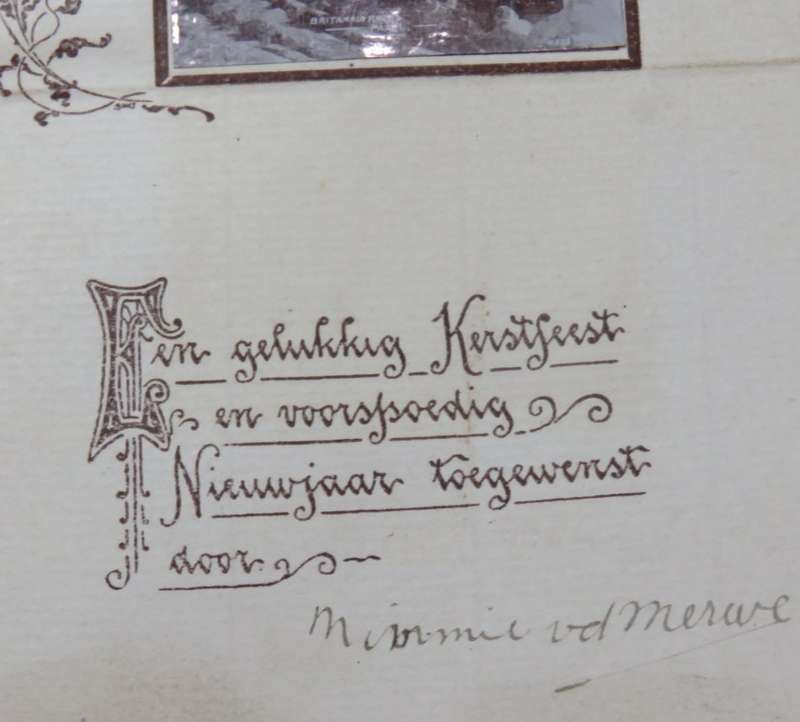 BRITANNIA
Een gelukkig Kerstfeest
en voorspoedig
Nieuwjaar toegewenst
door
Mimmie vd Merwe